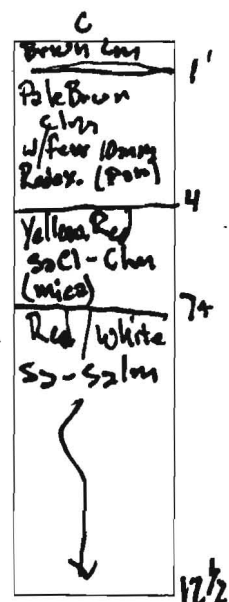 C
Brown Lm
1'
Pale Brown
clm
w/few 10mm
Redox. (Pom)
4
Yellow, Red
SaCl - Clm
(mica)
7+
Red / White
Sa - Salm
12 1/2